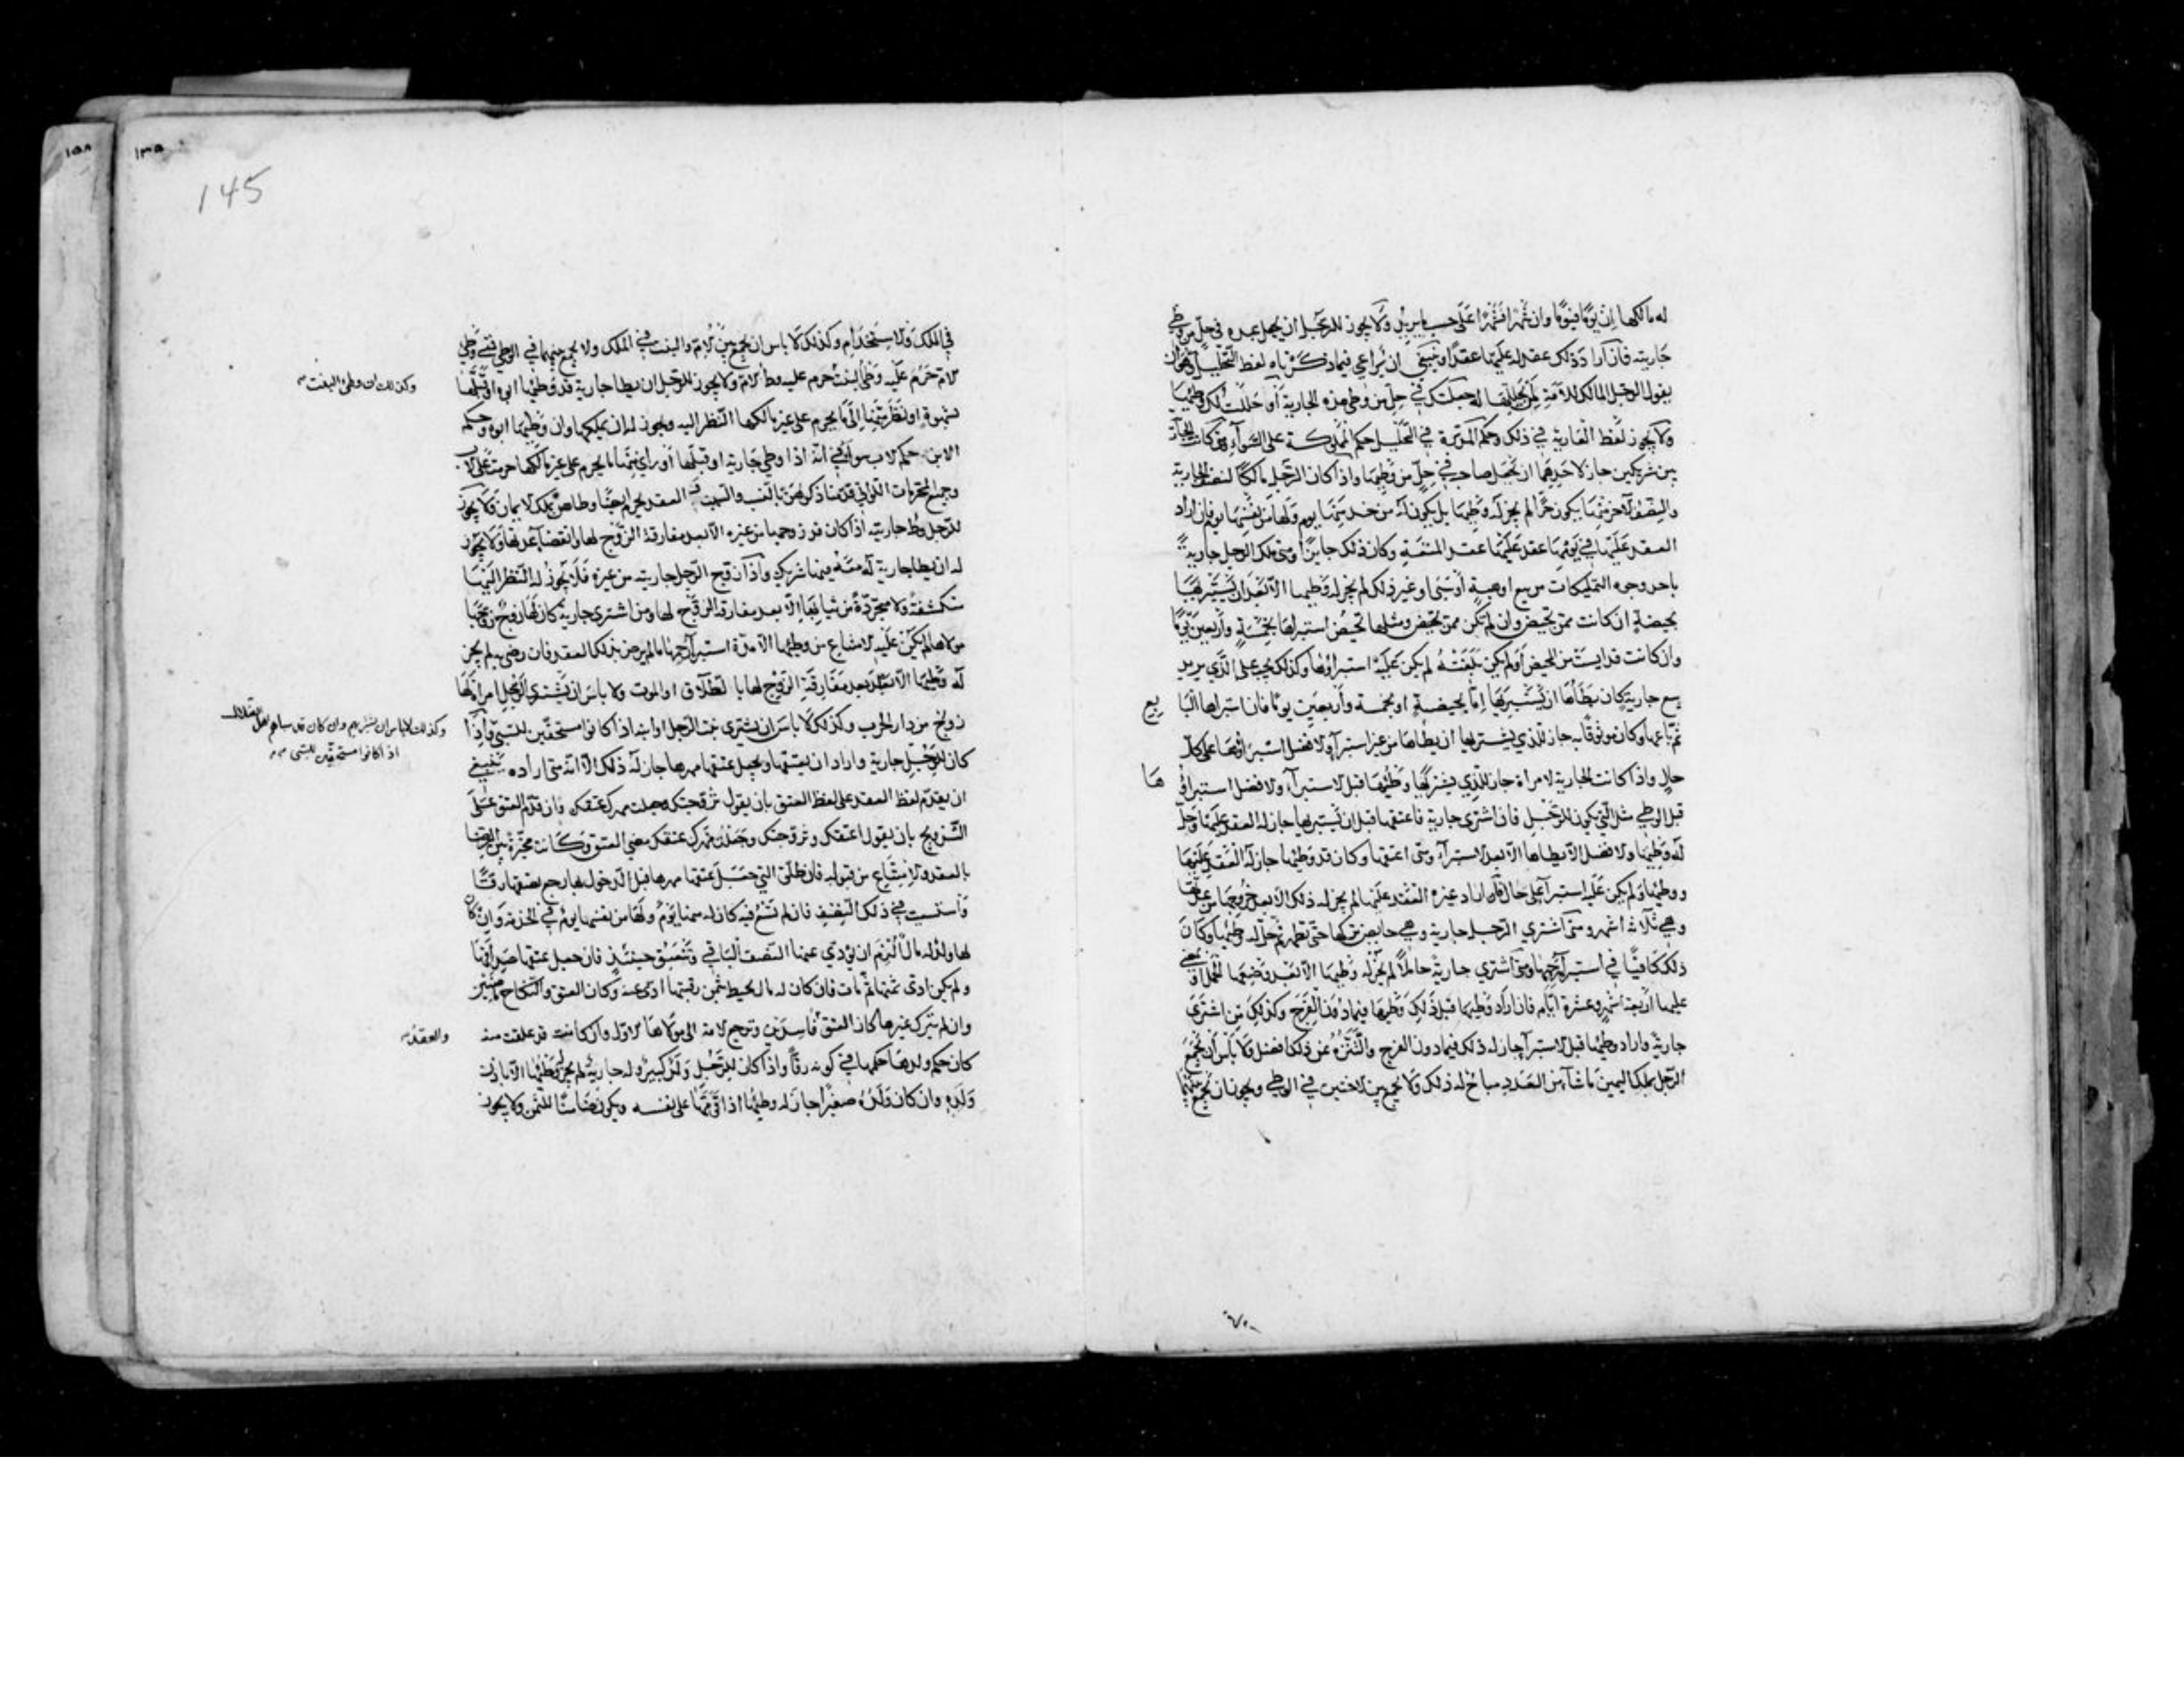 له مالكها إن يومًا فيومًا وان شهرا فشهرا على حسب ما يريد ولا يجوز للرجل ان يجعل عبده في حل من وطي
جاريته فان اراد ذلك عقد له عليها عقدًا وينبغي ان يراعي فيما ذكرناه لفظ التحليل وهو ان
يقول الرجل المالك للأمة لمن يحللها له جعلتك في حل من وطي هذه الجارية أو حللت لك وطيها
ولا يجوز لفظ العارية في ذلك وحكم المدبرة في التحليل حكم المملوكة على السواء ومتى كانت الجارية
بين شريكين جاز لاحدهما ان يجعل صاحبه في حل من وطيها واذا كان الرجل مالكًا لنصف الجارية
والنصف الآخر منها يكون حرًا لم يجز له وطيها بل يكون له من خدمتها يوم ولها من نفسها يوم فان اراد
العقد عليها في يومها عقد عليها عقد المتعة وكان ذلك جايزًا ومتى ملك الرجل جارية
باحد وجوه التمليكات من بيع او هبة أو سبي او غير ذلك لم يجز له وطيها الا بعد ان يستبرئها
بحيضة ان كانت ممن تحيض وان لم تكن ممن تحيض ومثلها تحيض استبرأها بخمسة وأربعين يومًا
وان كانت قد ايست من الحيض أو لم يكن بلغته لم يكن عليه استبراؤها وكذلك يجب على الذي يريد
بيع جارية كان يطأها ان يستبرئها إما بحيضة او بخمسة وأربعين يومًا فان استبراها البايع
ثم باعها وكان موثوقًا به جاز للذي يشتريها ان يطأها من غير استبرآء والافضل استبراؤها على كل
حال واذا كانت الجارية لامراة جاز للذي يشتريها وطيها قبل الاستبرآء والافضل استبراؤها
قبل الوطي مثل التي يكون للرجل فان اشترى جارية فاعتقها قبل ان يستبرئها جاز له العقد عليها وحل
له وطيها والافضل الا يطأها الا بعد الاستبرآء ومتى اعتقها وكان قد وطيها جاز له العقد عليها
ووطيها ولم يكن عليه استبرآء على حال فان اراد غيره العقد عليها لم يجز له ذلك الا بعد خروجها من عدتها
وهي ثلاثة اشهر ومتى اشترى الرجل جارية وهي حايض تركها حتى تطهر ثم حل له وطيها وكان
ذلك كافيًا في استبرآء رحمها ومتى اشترى جارية حاملاً لم يجز له وطيها الا بعد وضعها الحمل أو يمضي
عليها أربعة اشهر وعشرة ايام فان اراد وطيها قبل ذلك وطيها فيما دون الفرج وكذلك من اشترى
جارية واراد وطيها قبل الاستبرآء جاز له ذلك فيما دون الفرج والتنزه عن ذلك افضل ولا بأس أن يجمع
الرجل بملك اليمين ما شآء من العدد مباح له ذلك ولا يجمع بين الاختين في الوطي ويجوز ان يجمع بينهما
145
١٥٨
١٣٥
في الملك والاستخدام وكذلك لا باس ان يجمع بين الام والبنت في الملك ولا يجمع بينهما في الوطي فمتى وطي
الام حرم عليه وطي البنت حرم عليه وطأ الام ولا يجوز للرجل ان يطأ جارية قد وطيها ابوه او قبلها
وكذلك ان وطئ البنت
بشهوة او نظر منها إلى ما يحرم على غير مالكها النظر اليه ويجوز له ان يملكها وان وطيها ابوه وحكم
الابن حكم الاب سواء في انه اذا وطي جارية او قبلها أو راى منها ما يحرم على غير مالكها حرمت على الاب
وجميع المحرمات اللواتي قدمنا ذكرهن بالنسب والسبب في العقد يحرم ايضًا وطاهن بملك الايمان ولا يجوز
للرجل وطء جاريته اذا كان قد زوجها من غيره الا بعد مفارقة الزوج لها وانقضاء عدتها ولا يجوز
له ان يطأ جارية له معه فيها شريك واذا زوج الرجل جاريته من غيره فلا يجوز له النظر اليها
منكشفة ولا متجردة من ثيابها إلا بعد مفارقة الزوج لها ومن اشترى جارية كان لها زوج زوجها
مولاها لم يكن عليه الامتناع من وطيها الا مدة استبرآء رحمها ما لم يرض بذلك العقد فان رضي به لم يجز
له وطيها الا بعد مفارقة الزوج لها بالطلاق او الموت ولا باس ان يشتري الرجل امراة لها
زوج من دار الحرب وكذلك لا باس ان يشتري بنت الرجل او ابنه اذا كانوا مستحقين للسبي وإذا
وكذلك لا باس ان يشتريهم وان كان قد سباهم اهل الضلال
اذا كانوا مستحقين للسبي
كان للرجل جارية واراد ان يعتقها ويجعل عتقها مهرها جاز له ذلك الا انه متى اراده ينبغي
ان يقدم لفظ العقد على لفظ العتق بان يقول تزوجتك وجعلت مهرك عتقك وان قدم العتق على
التزويج بان يقول اعتقتك وتزوجتك وجعلت مهرك عتقك مضى العتق وكانت مخيرة بين الرضا
بالعقد والامتناع من قبوله فان طلق التي جعل عتقها مهرها قبل الدخول بها رجع نصفها رقًا
واستسعيت في ذلك النصف فان لم تسع فيه كان له منها يوم ولها من نفسها يوم في الخدمة وان كان
لها ولد له مال ألزم ان يؤدي عنها النصف الباقي وتنعتق حينئذ فان جعل عتقها صداقها
ولم يكن ادى ثمنها ثم مات فان كان له مال يحيط بثمن رقبتها ادي عنه وكان العتق والنكاح ماضيين
وان لم يترك غيرها كان العتق فاسدين وترجع الامة الى مولاها الاول وان كانت قد علقت منه
والعقد
كان حكم ولدها حكمها في كونه رقًا واذا كان للرجل ولد كبير وله جارية لم يجز له وطيها الا باذن
ولده وان كان ولده صغيرًا جاز له وطيها اذا قومها على نفسه ويكون ضامنًا للثمن ولا يجوز